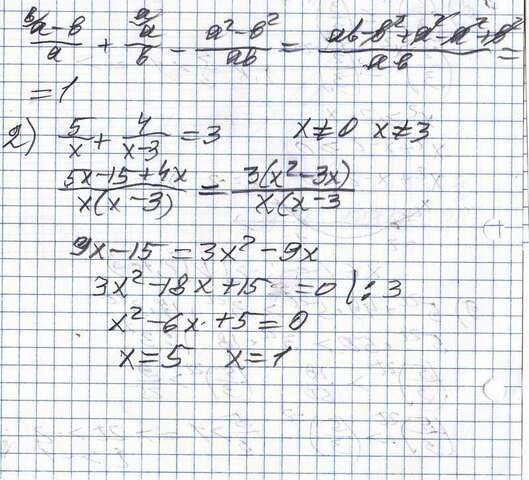 в/ a-в/a + a/ a/в - a²-в²/aв = aв-в²+a²-a²+в²/aв =
=1
2) 5/x + 4/x-3 =3 x≠0 x≠3
5x-15+4x/x(x-3) = 3(x²-3x)/x(x-3
9x-15=3x²-9x
3x²-18x+15 =0 |:3
x²-6x+5=0
x=5 x=1